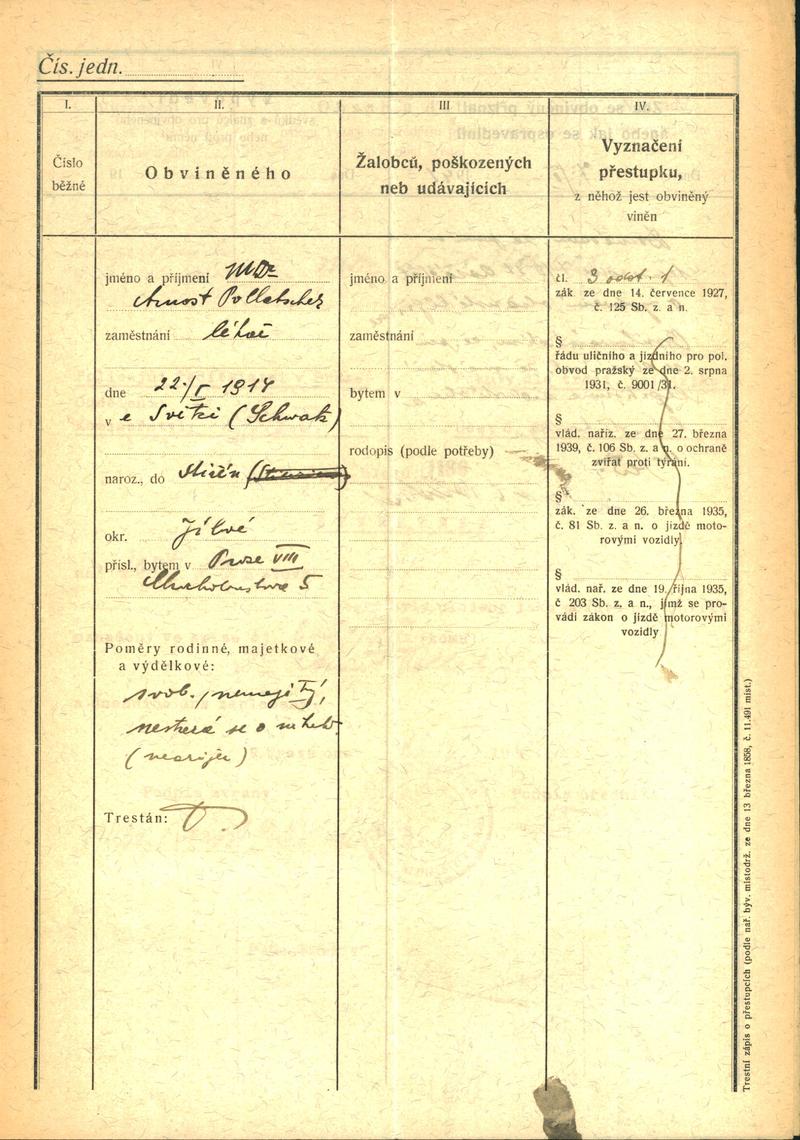 Čís. jedn.
I.
II.
III
IV.
Číslo
běžné
Obviněného
Žalobců, poškozených
neb udávajících
Vyznačení
přestupku,
z něhož jest obviněný
viněn
jméno a příjmení MUDr
Arnošt Pollatschek
zaměstnání lékař
dne 22./I 1914
v e Světci (Schwatz)
naroz., do
okr. Jílové
přísl., bytem v Praze VIII
5
Poměry rodinné, majetkové
a výdělkové:
svob., nemajetný,
nestará se o
(nearijec)
Trestán:
jméno a příjmení
zaměstnání
bytem v
rodopis (podle potřeby)
čl. 3 odst. 1
zák. ze dne 14. července 1927,
č. 125 Sb. z. a n.
§
řádu uličního a jízdního pro pol.
obvod pražský ze dne 2. srpna
1931, č. 9001/31.
§
vlád. naříz. ze dne 27. března
1939, č. 106 Sb. z. a n. o ochraně
zvířat proti týrání.
§
zák. ze dne 26. března 1935,
č. 81 Sb. z. a n. o jízdě moto-
rovými vozidly.
§
vlád. nař. ze dne 19. října 1935,
č 203 Sb. z. a n., jímž se pro-
vádí zákon o jízdě motorovými
vozidly
Trestní zápis o přestupcích (podle nař. býv. místodrž. ze dne 13 března 1858, č. 11.491 míst.)